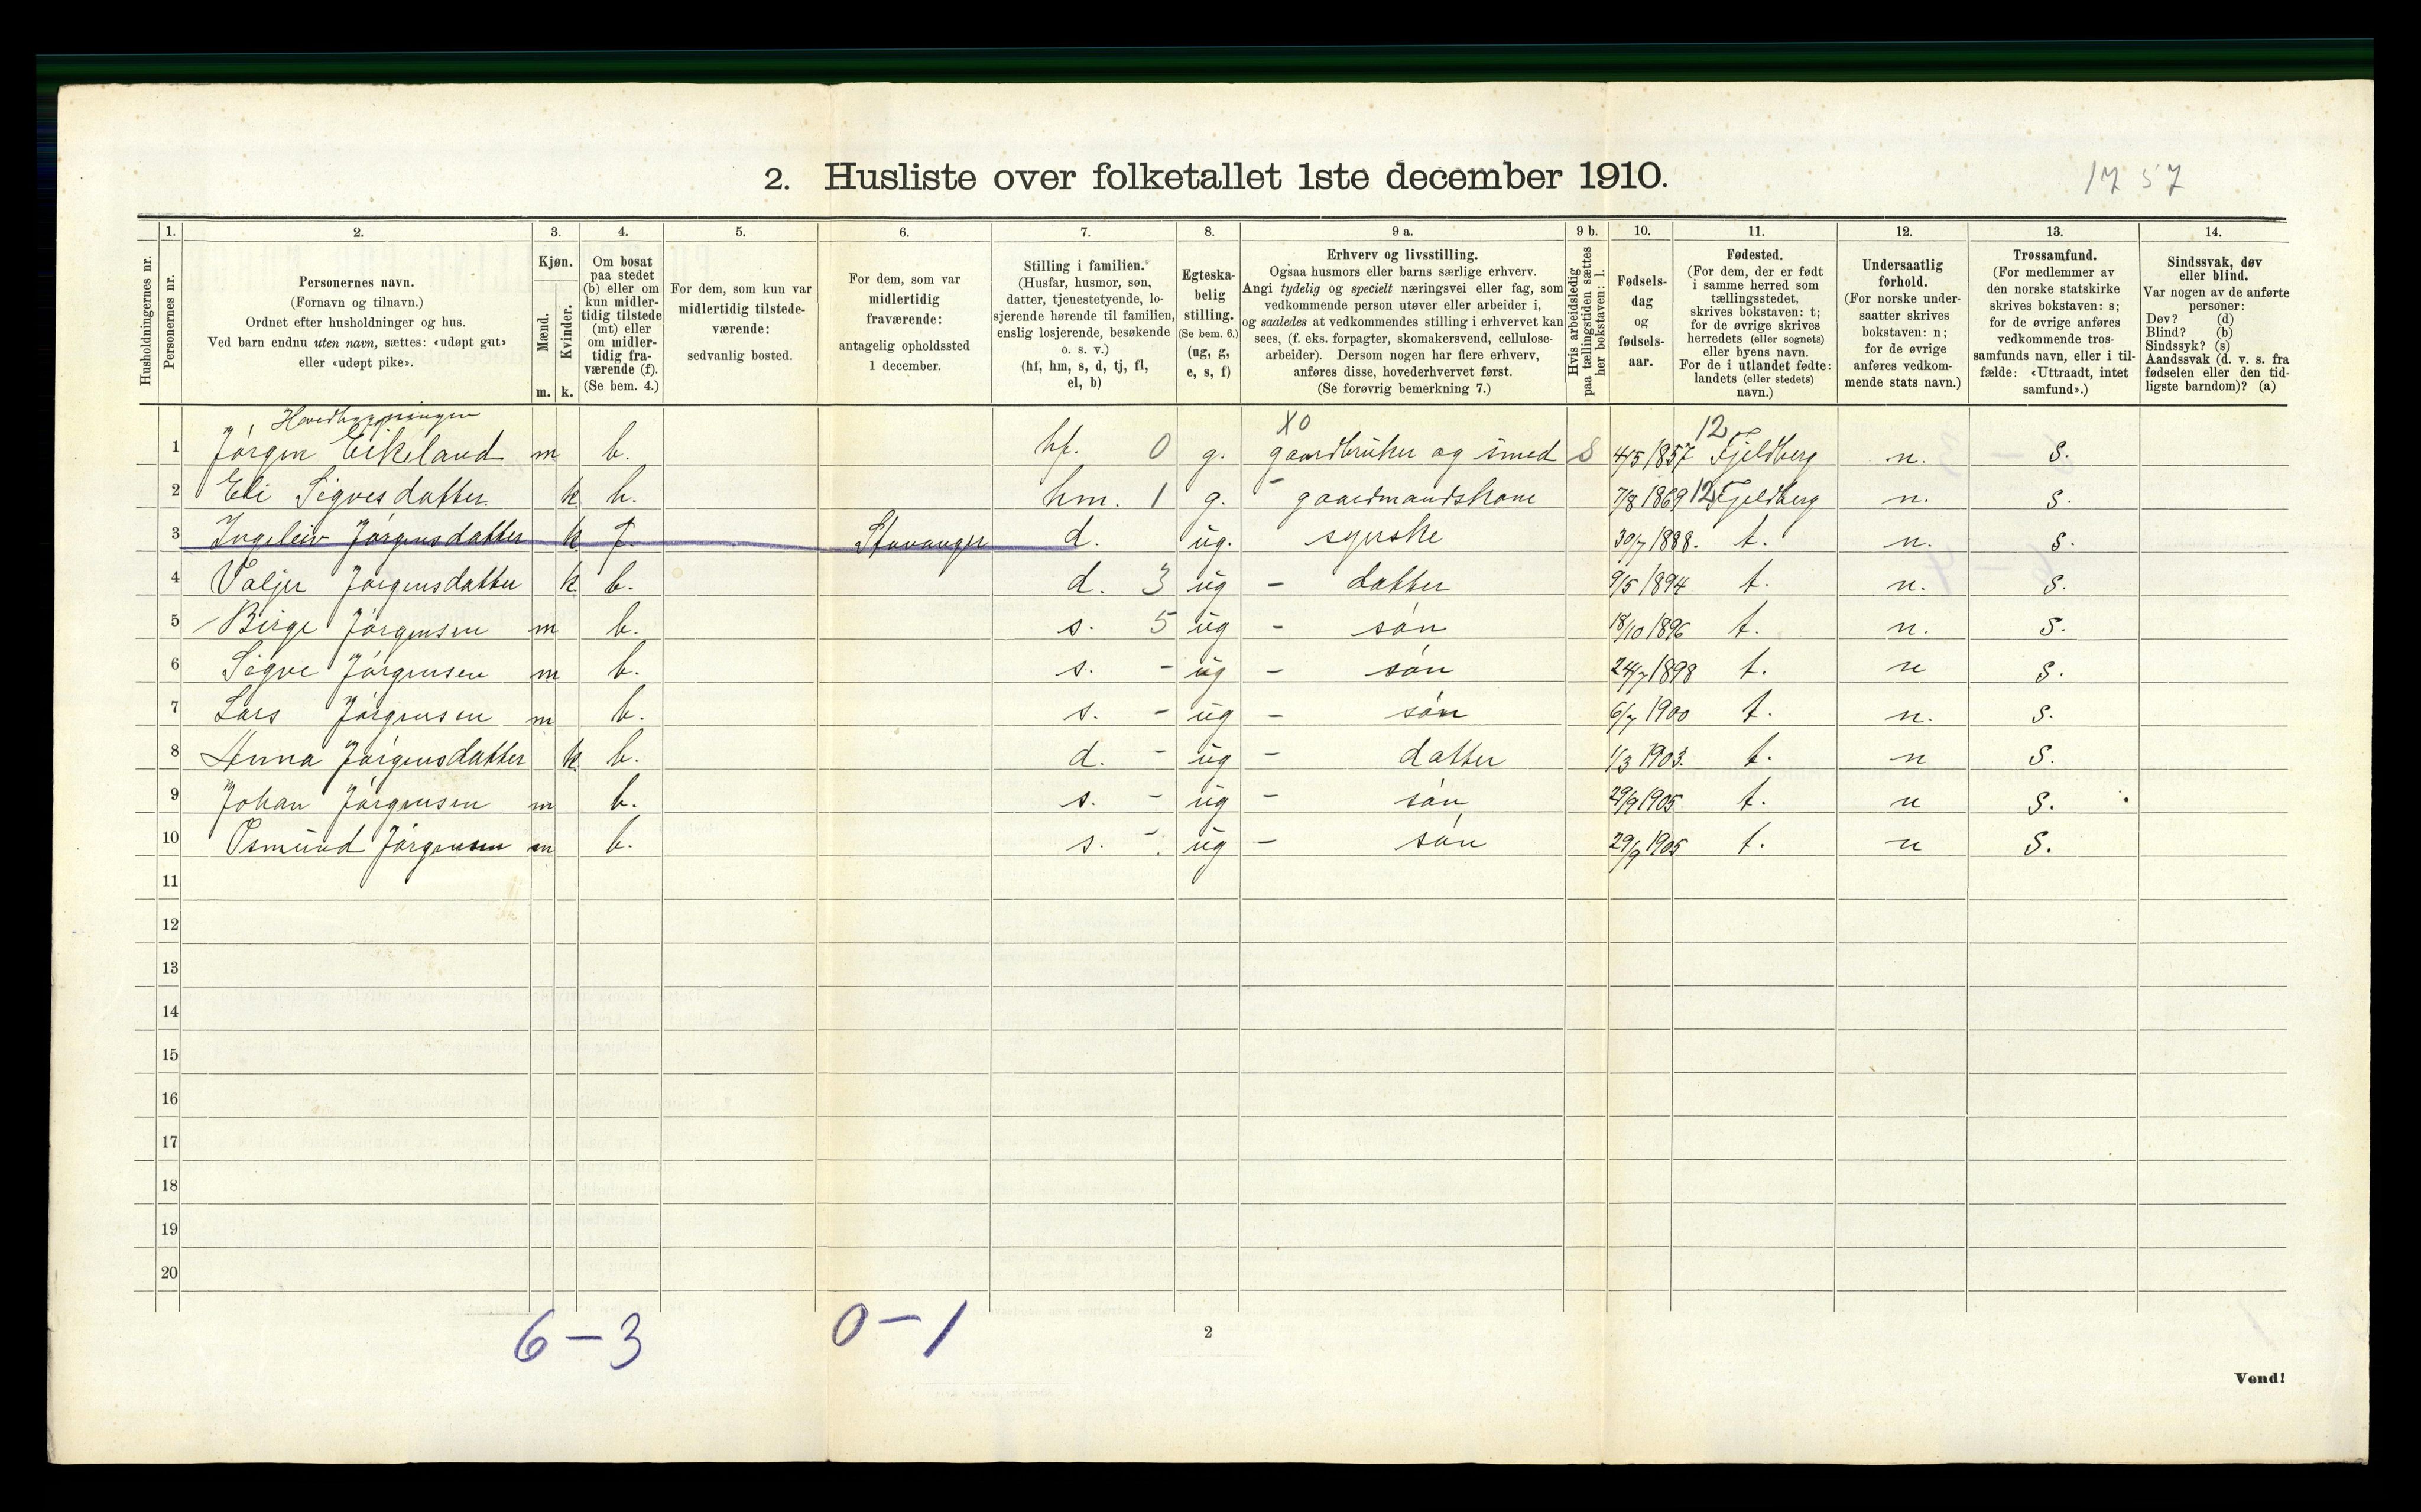 2. Husliste over folketallet 1ste december 1910.
17 57
Husholdningernes nr.
1. Personernes nr.
2. Personernes navn.
(Fornavn og tilnavn.)
Ordnet efter husholdninger og hus.
Ved barn endnu uten navn, sættes: «udøpt gut»
eller «udøpt pike».
3. Kjøn.
Mænd. m.
Kvinder. k.
4. Om bosat
paa stedet
(b) eller om
kun midler-
tidig tilstede
(mt) eller
om midler-
tidig fra-
værende (f).
(Se bem. 4.)
5. For dem, som kun var
midlertidig tilstede-
værende:
sedvanlig bosted.
6. For dem, som var
midlertidig
fraværende:
antagelig opholdssted
1 december.
7. Stilling i familien.
(Husfar, husmor, søn,
datter, tjenestetyende, lo-
sjerende hørende til familien,
enslig losjerende, besøkende
o. s. v.)
(hf, hm, s, d, tj, fl,
el, b)
8. Egteska-
belig
stilling.
(Se bem. 6.)
(ug, g,
e, s, f)
9 a. Erhverv og livsstilling.
Ogsaa husmors eller barns særlige erhverv.
Angi tydelig og specielt næringsvei eller fag, som
vedkommende person utøver eller arbeider i,
og saaledes at vedkommendes stilling i erhvervet kan
sees, (f. eks. forpagter, skomakersvend, cellulose-
arbeider). Dersom nogen har flere erhverv,
anføres disse, hovederhvervet først.
(Se forøvrig bemerkning 7.)
9 b. Hvis arbeidsledig
paa tællingstiden sættes
her bokstaven: l.
10. Fødsels-
dag
og
fødsels-
aar.
11. Fødested.
(For dem, der er født
i samme herred som
tællingsstedet,
skrives bokstaven: t;
for de øvrige skrives
herredets (eller sognets)
eller byens navn.
For de i utlandet fødte:
landets (eller stedets)
navn.)
12. Undersaatlig
forhold.
(For norske under-
saatter skrives
bokstaven: n;
for de øvrige
anføres vedkom-
mende stats navn.)
13. Trossamfund.
(For medlemmer av
den norske statskirke
skrives bokstaven: s;
for de øvrige anføres
vedkommende tros-
samfunds navn, eller i til-
fælde: «Uttraadt, intet
samfund».)
14. Sindssvak, døv
eller blind.
Var nogen av de anførte
personer:
Døv? (d)
Blind? (b)
Sindssyk? (s)
Aandssvak (d. v. s. fra
fødselen eller den tid-
ligste barndom)? (a)
Hovedbygningen X0 12
1 Jørgen Eikeland m b. hf. 0 g. gaardbruker og smed S 4/5 1857 Fjeldberg n. s.
2 Eli Sigvesdatter k b. hm. 1 g. - gaardmandskone 7/8 1869 12 Fjeldberg n. s.
3 Ingeleiv Jørgensdatter k f. Stavanger d. ug. syerske 30/7 1888. t. n. s.
4 Valjer Jørgensdatter k b. d. 3 ug - datter 9/5 1894 t. n. s.
5 Birge Jørgensen m b. s. 5 ug - søn 18/10 1896 t. n. s.
6 Sigve Jørgensen m b. s. - ug - søn 24/7 1898 t. n s.
7 Lars Jørgensen m b. s. - ug - søn 6/7 1900 t. n. s.
8 Anna Jørgensdatter k b. d. - ug - datter 1/3 1903. t. n s.
9 Johan Jørgensen m b. s. - ug - søn 29/9 1905 t. n s.
10 Osmund Jørgensen m b. s. - ug - søn 29/9 1905 t. n s.
11
12
13
14
15
16
17
18
19
20
6-3 0-1
2
Vend!